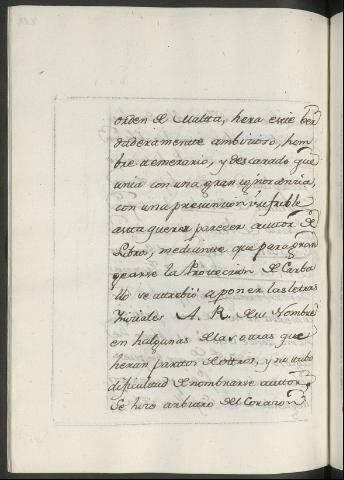 orden de Maltta, hera este ber
daderamente ambicioso, hom
bre temerario, y descarado que
unia con una gran ignorancia,
con una presuncion insufrible
asta querer parecer autor de
Libros, mediante que para gran
gearse la Proteccion de Carba
llo se atrebió a poner las letras
Iniciales A. R. de su Nombre
en halgunas de las otras que
heran partos de otros, y no tubo
dificultad de nombrarse autor,
Se hizo arbitro del Corazon